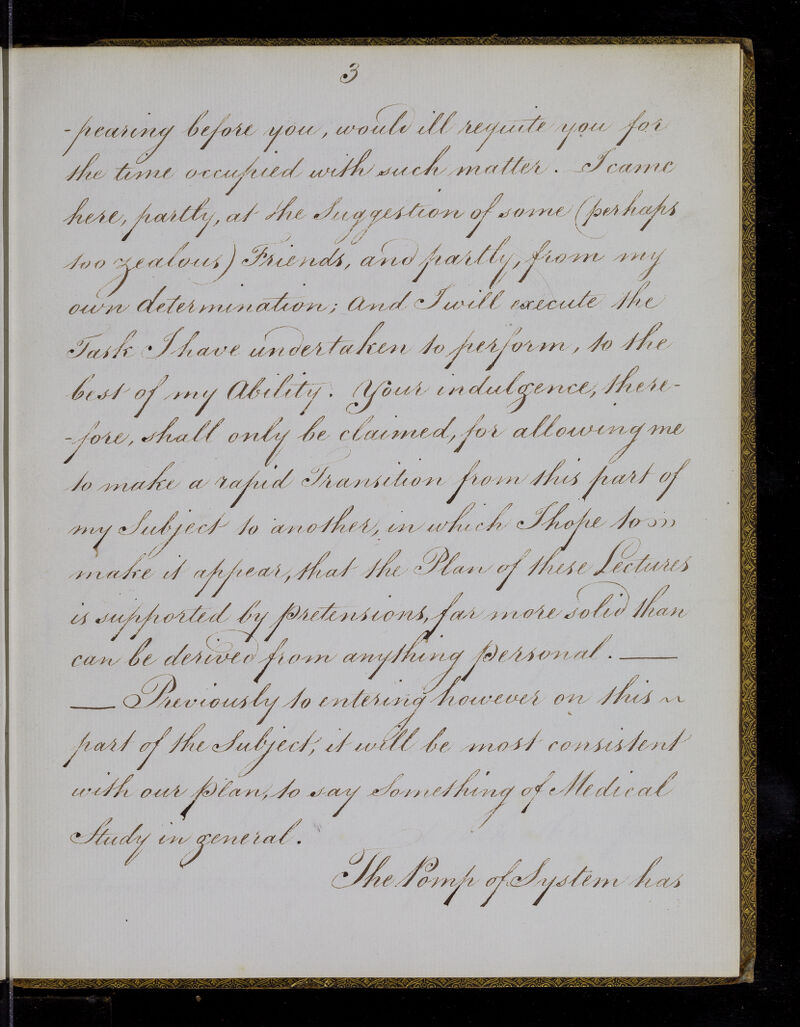 3
-pearing before you, would ill requite you for
the time occupied with such matter. I came
here, partly, at the Suggestion of some (perhaps
too zealous) Friends, and partly, from my
own determination; and I will execute the
Task I have undertaken to perform, to the
best of my Ability. Your indulgence, there-
-fore, shall only be claimed, for allowing me
to make a rapid Transition from this part of
my Subject to another, in which I hope to
make it appear, that the Plan of these Lectures
is supported by pretensions, far more solid than
can be derived from anything personal. —
— Previously to entering however on this
part of the Subject, it will be most consistent
with our plan, to say Something of Medical
Study in general.
The Pomp of System has